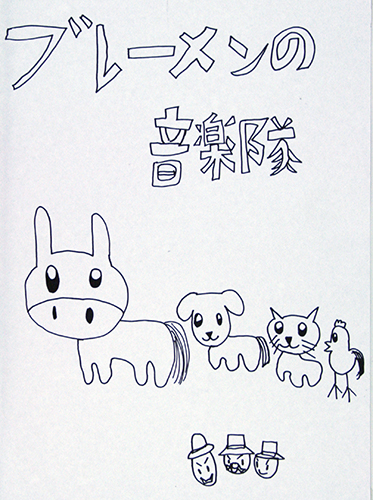 ブレーメンの
音楽隊